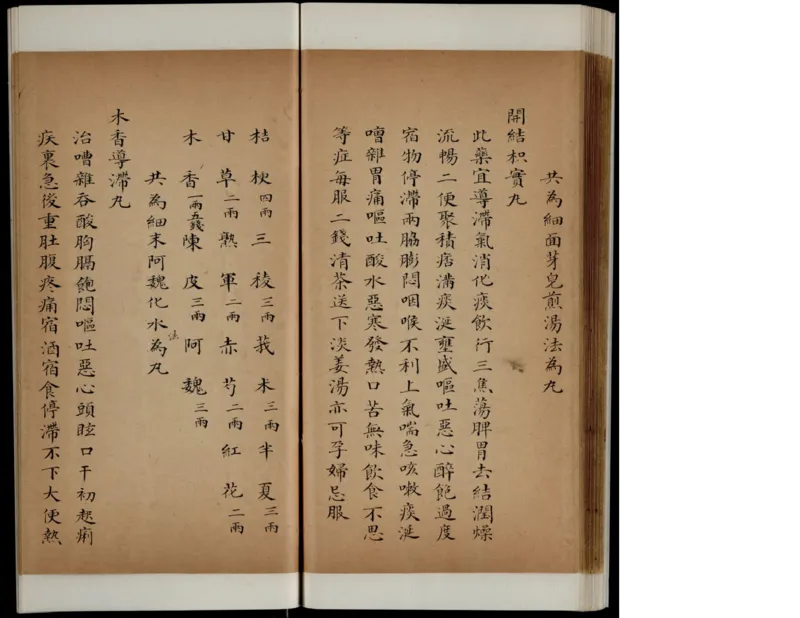 共為細面芽皂煎湯法為丸
開結枳實丸
此藥宜導滯氣消化痰飲行三焦蕩脾胃去結潤燥
流暢二便聚積痞滿痰涎壅盛嘔吐惡心醉飽過度
宿物停滯兩脇膨悶咽喉不利上氣喘急咳嗽痰涎
嘈雜胃痛嘔吐酸水惡寒發熱口苦無味飲食不思
等症每服二錢清茶送下淡姜湯亦可孕婦忌服
桔梗四兩三稜三兩莪朮三兩半夏三兩
甘草二兩熟軍二兩赤芍二兩紅花二兩
木香一兩五錢陳皮三兩阿魏三兩
共為細末阿魏化水為丸
法
木香導滯丸
治嘈雜吞酸胸膈飽悶嘔吐惡心頭眩口干初起痢
疾裏急後重肚腹疼痛宿酒宿食停滯不下大便熱